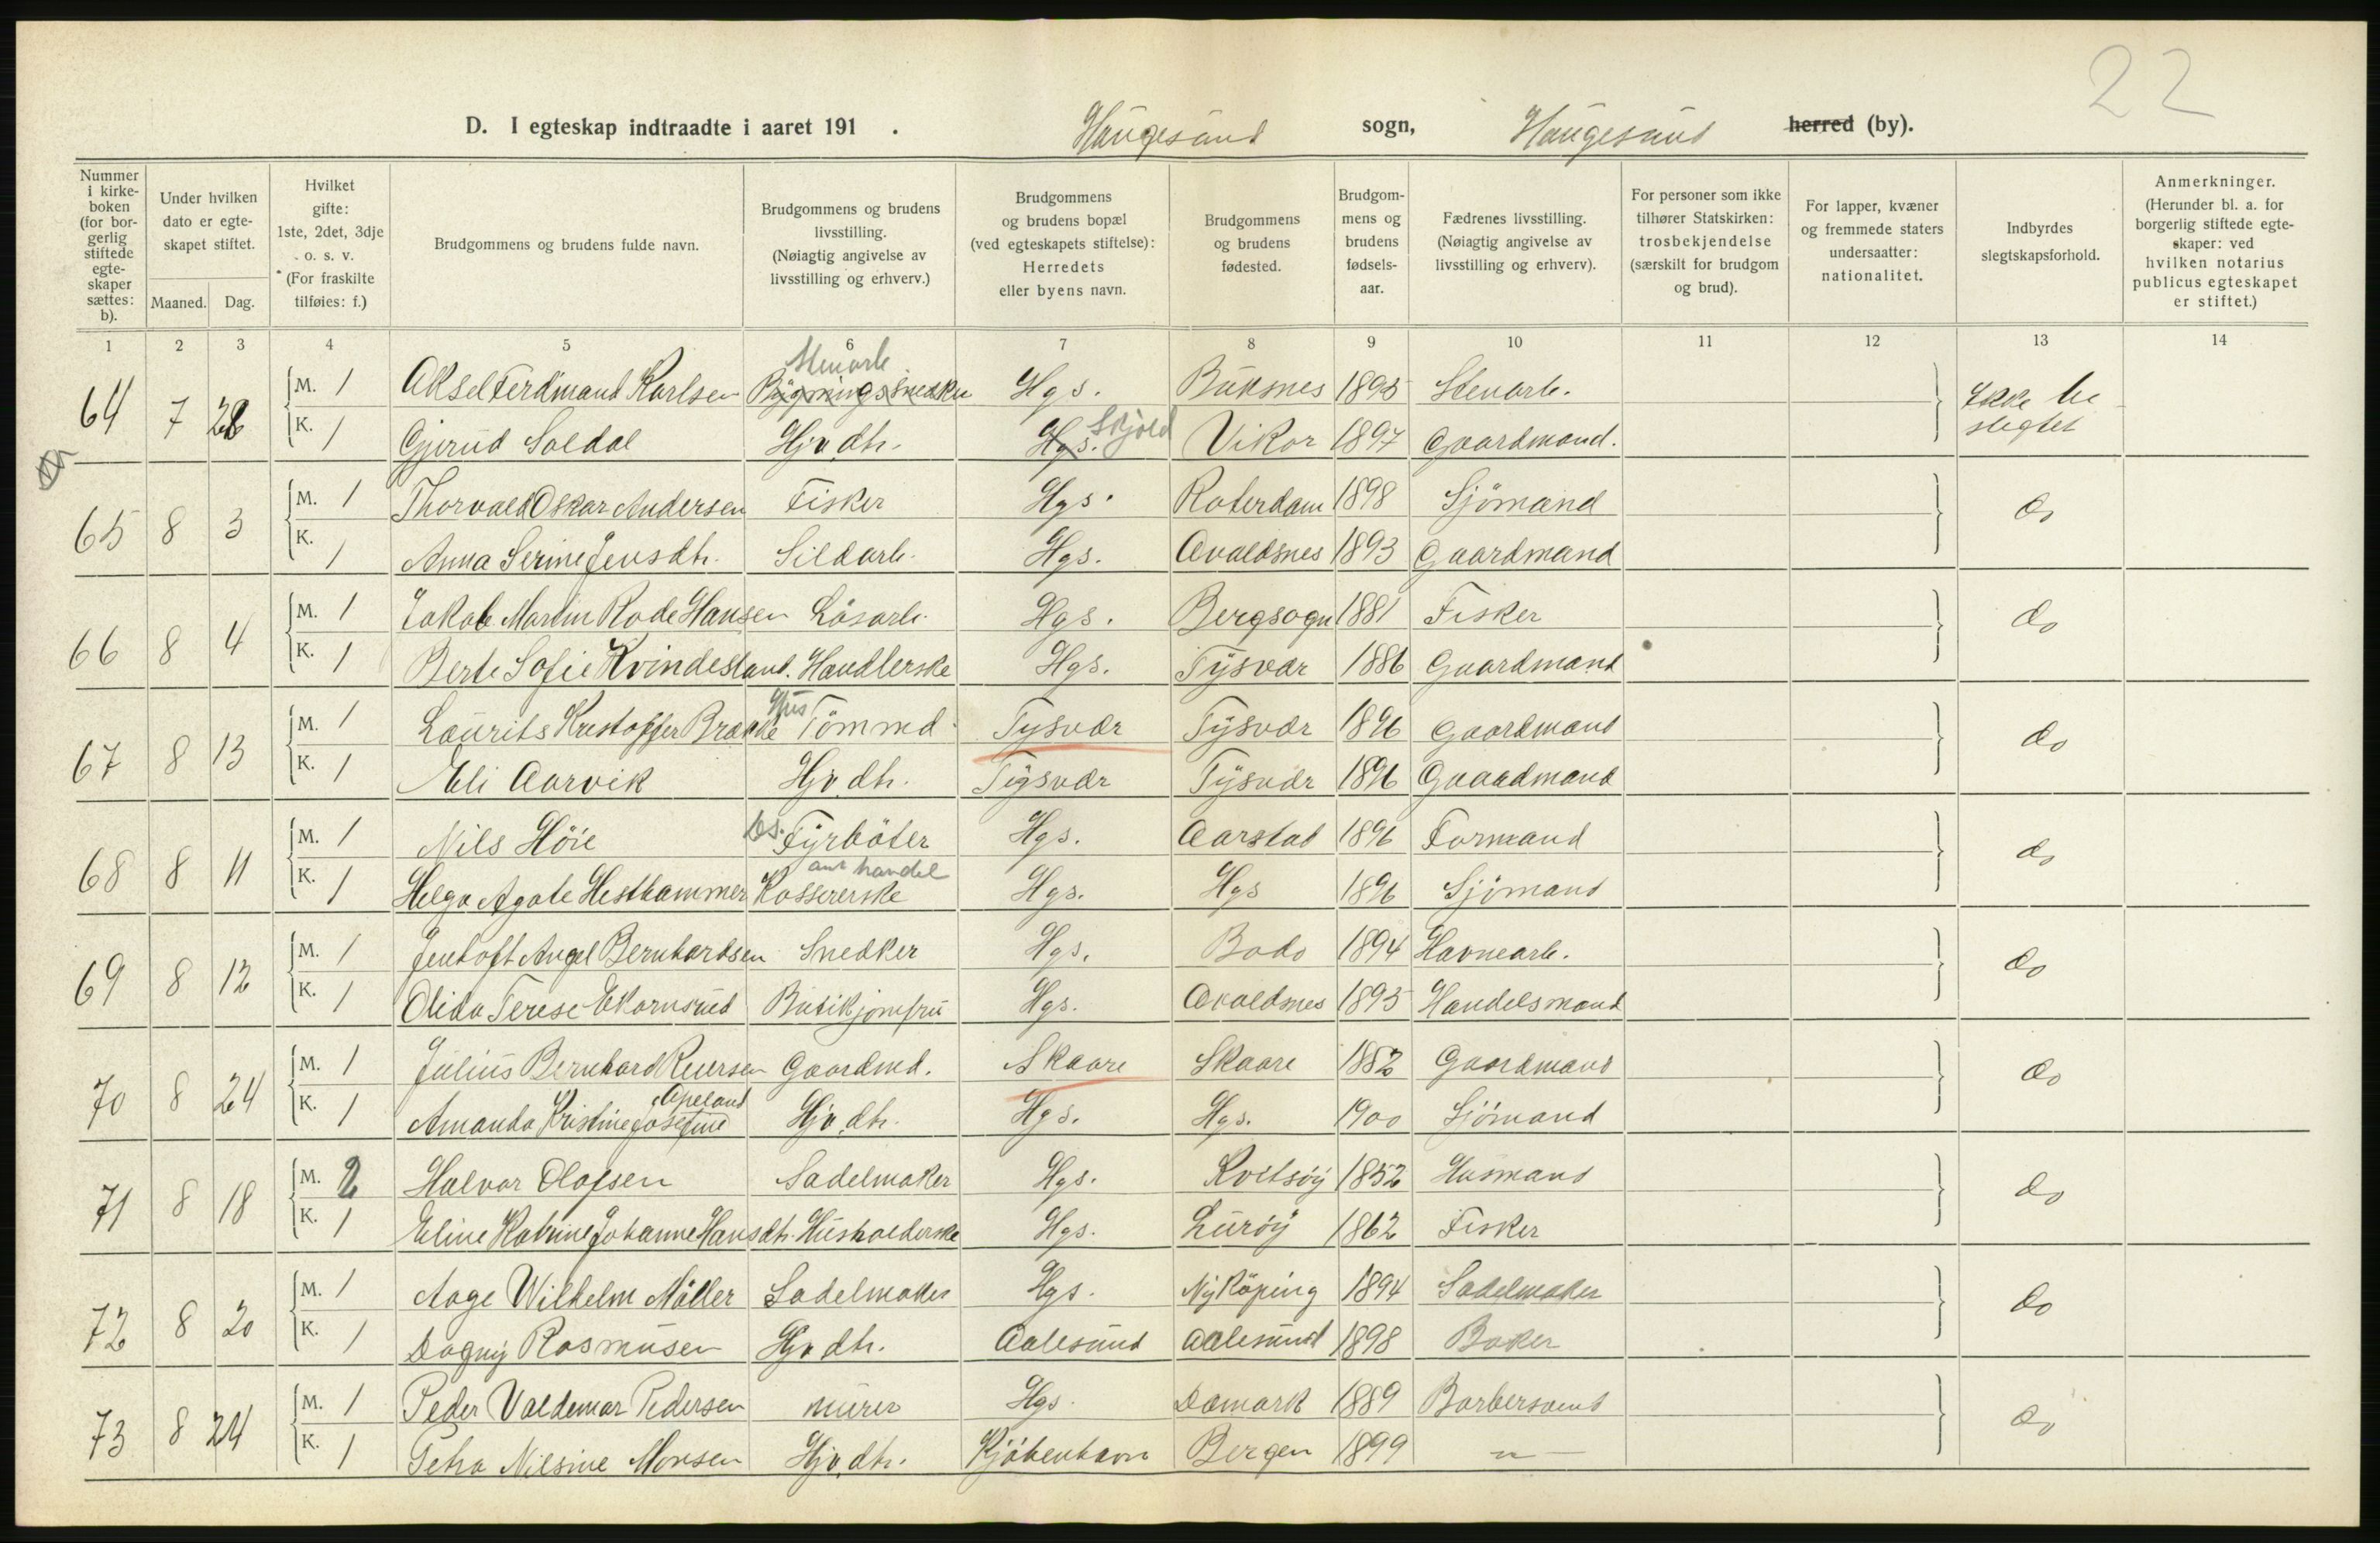 22
D. I egteskap indtraadte i aaret 191 . Haugesund sogn, Haugesund herred (by).
Nummer i kirkeboken (for borgerlig stiftede egteskaper sættes: b).
Under hvilken dato er egteskapet stiftet.
Maaned. Dag.
Hvilket gifte: 1ste, 2det, 3dje o. s. v. (For fraskilte tilføies: f.)
Brudgommens og brudens fulde navn.
Brudgommens og brudens livsstilling. (Nøiagtig angivelse av livsstilling og erhverv.)
Brudgommens og brudens bopæl (ved egteskapets stiftelse): Herredets eller byens navn.
Brudgommens og brudens fødested.
Brudgommens og brudens fødselsaar.
Fædrenes livsstilling. (Nøiagtig angivelse av livsstilling og erhverv).
For personer som ikke tilhører Statskirken: trosbekjendelse (særskilt for brudgom og brud).
For lapper, kvæner og fremmede staters undersaatter: nationalitet.
Indbyrdes slegtskapsforhold.
Anmerkninger. (Herunder bl. a. for borgerlig stiftede egteskaper: ved hvilken notarius publicus egteskapet er stiftet.)
1 2 3 4 5 6 7 8 9 10 11 12 13 14
Stenarb
64 7 28 M. 1 Aksel Ferdinand Karlsen Bygningssnedker Hgs. Buksnes 1895 Stenarb. Ikke beslegtet
K. 1 Gjerud Soldal Hjv. dtr. Hgs. Skjold Vikor 1897 Gaardmand.
65 8 3 M. 1 Thorvald Oskar Andersen Fisker Hgs. Roterdam 1898 Sjömand do
K. 1 Anna Serine Jensdtr. Sildarb. Hgs. Avaldsnes 1893 Gaardmand
66 8 4 M. 1 Jakob Martin Rode Hansen Lösarb. Hgs. Bergsogn 1881 Fisker do
K. 1 Berte Sofie Kvindesland. Handlerske Hgs. Tysvær 1886 Gaardmand
67 8 13 M. 1 Laurits Kristoffer Brakke Hus Tömmd. Tysvær Tysvær 1896 Gaardmand do
K. 1 Eli Aarvik Hjv. dtr. Tysvær Tysvær 1896 Gaardmand
68 8 11 M. 1 Nils Höie Ds. Fyrböter Hgs. Aarstad 1896 Formand do
K. 1 Helga Agate Hesthammer Kassererske ant handel Hgs. Hgs 1896 Sjömand
69 8 12 M. 1 Jentoft Angel Bernhardsen Snedker Hgs. Bodo 1894 Havnearb. do
K. 1 Olida Terese Ekornsud Butikjomfru Hgs. Avaldsnes 1895 Handelsmand
70 8 24 M. 1 Julius Bernhard Reiersen Gaardmd. Skaare Skaare 1882 Gaardmand do
K. 1 Amanda Kristine Josefine Apeland Hjv. dtr. Hgs. Hgs. 1900 Sjömand
71 8 18 M. 2 Halvor Olafsen Sadelmaker Hgs. Kvitsöy 1852 Husmand do
K. 1 Eline Katrine Johanne Hansdtr. Husholderske Hgs. Luröy 1862 Fisker
72 8 20 M. 1 Aage Wilhelm Möller Sadelmaker Hgs. Nyköping 1894 Sadelmaker do
K. 1 Dagny Rasmusen Hjv dtr. Aalesund Aalesund 1898 Baker
73 8 24 M. 1 Peder Valdemar Pedersen murer Hgs. Damark 1889 Barbersvend do
K. 1 Petra Nilsine Monsen Hjv. dtr. Kjöbenhavn Bergen 1899 —"—